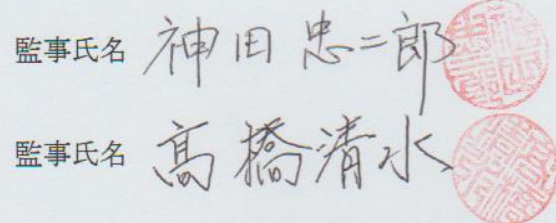 監事氏名 神田忠二郎
監事氏名 髙橋清水